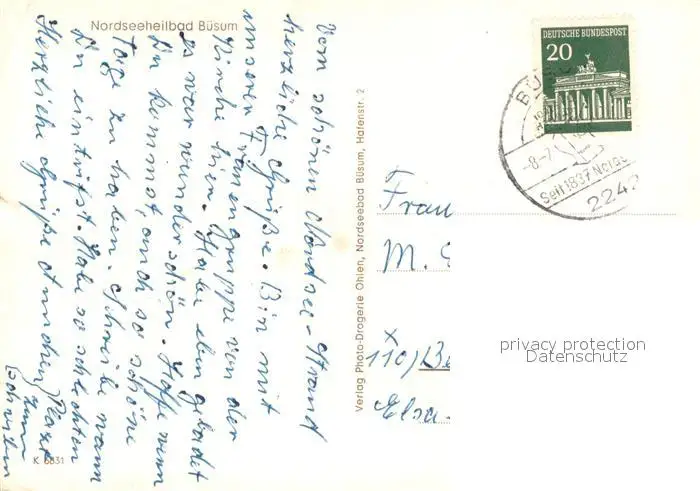 Nordseeheilbad Büsum
Vom schönen Nordsee-Strand
herzliche Grüße. Bin mit
unserer Frauengruppe von der
Kirche hier. Habe eben gebadet
es war wunderschön. Hoffe wenn
Du kommst, auch so schöne
Tage zu haben. Schreibe wann
Du eintrifst. Habe so schlechten
Platz zum schreiben
Herzliche Grüße
K 6831
Verlag Photo-Drogerie Ohlen, Nordseebad Büsum, Hafenstr. 2
DEUTSCHE BUNDESPOST
20
BÜS
-8.-7
Seit 1837 Nords
2242
Frau
M.
X
110)
Elsa-
privacy protection
Datenschutz